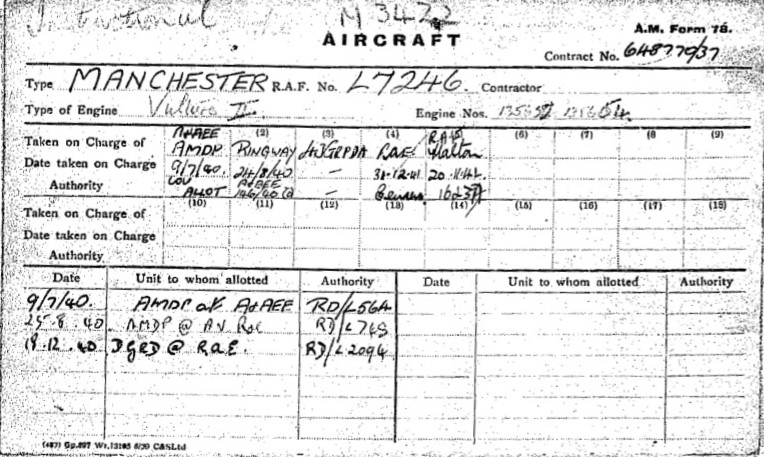 M 3422
AIRCRAFT
A.M. Form 78.
Contract No. 648770/37
Type MANCHESTER R.A.F. No. L7246. Contractor
Type of Engine Vulture II. Engine Nos.
(2) (3) (4) (6) (7) (8) (9)
Taken on Charge of A&AEE AMDP RINGWAY RAE RAF Halton
Date taken on Charge 9/7/40. 24/8/40. — 31.12.41 20.11.42
Authority ALLOT A&AEE —
(10) (11) (12) (13) (14) (15) (16) (17) (18)
Taken on Charge of
Date taken on Charge
Authority
Date Unit to whom allotted Authority Date Unit to whom allotted Authority
9/7/40. AMDP at A&AEE RD/L564
25.8.40 AMDP @ AV Roe RD/L748
18.12.40 DGRD @ R.A.E. RD/L2094
Gp.697 CASLtd